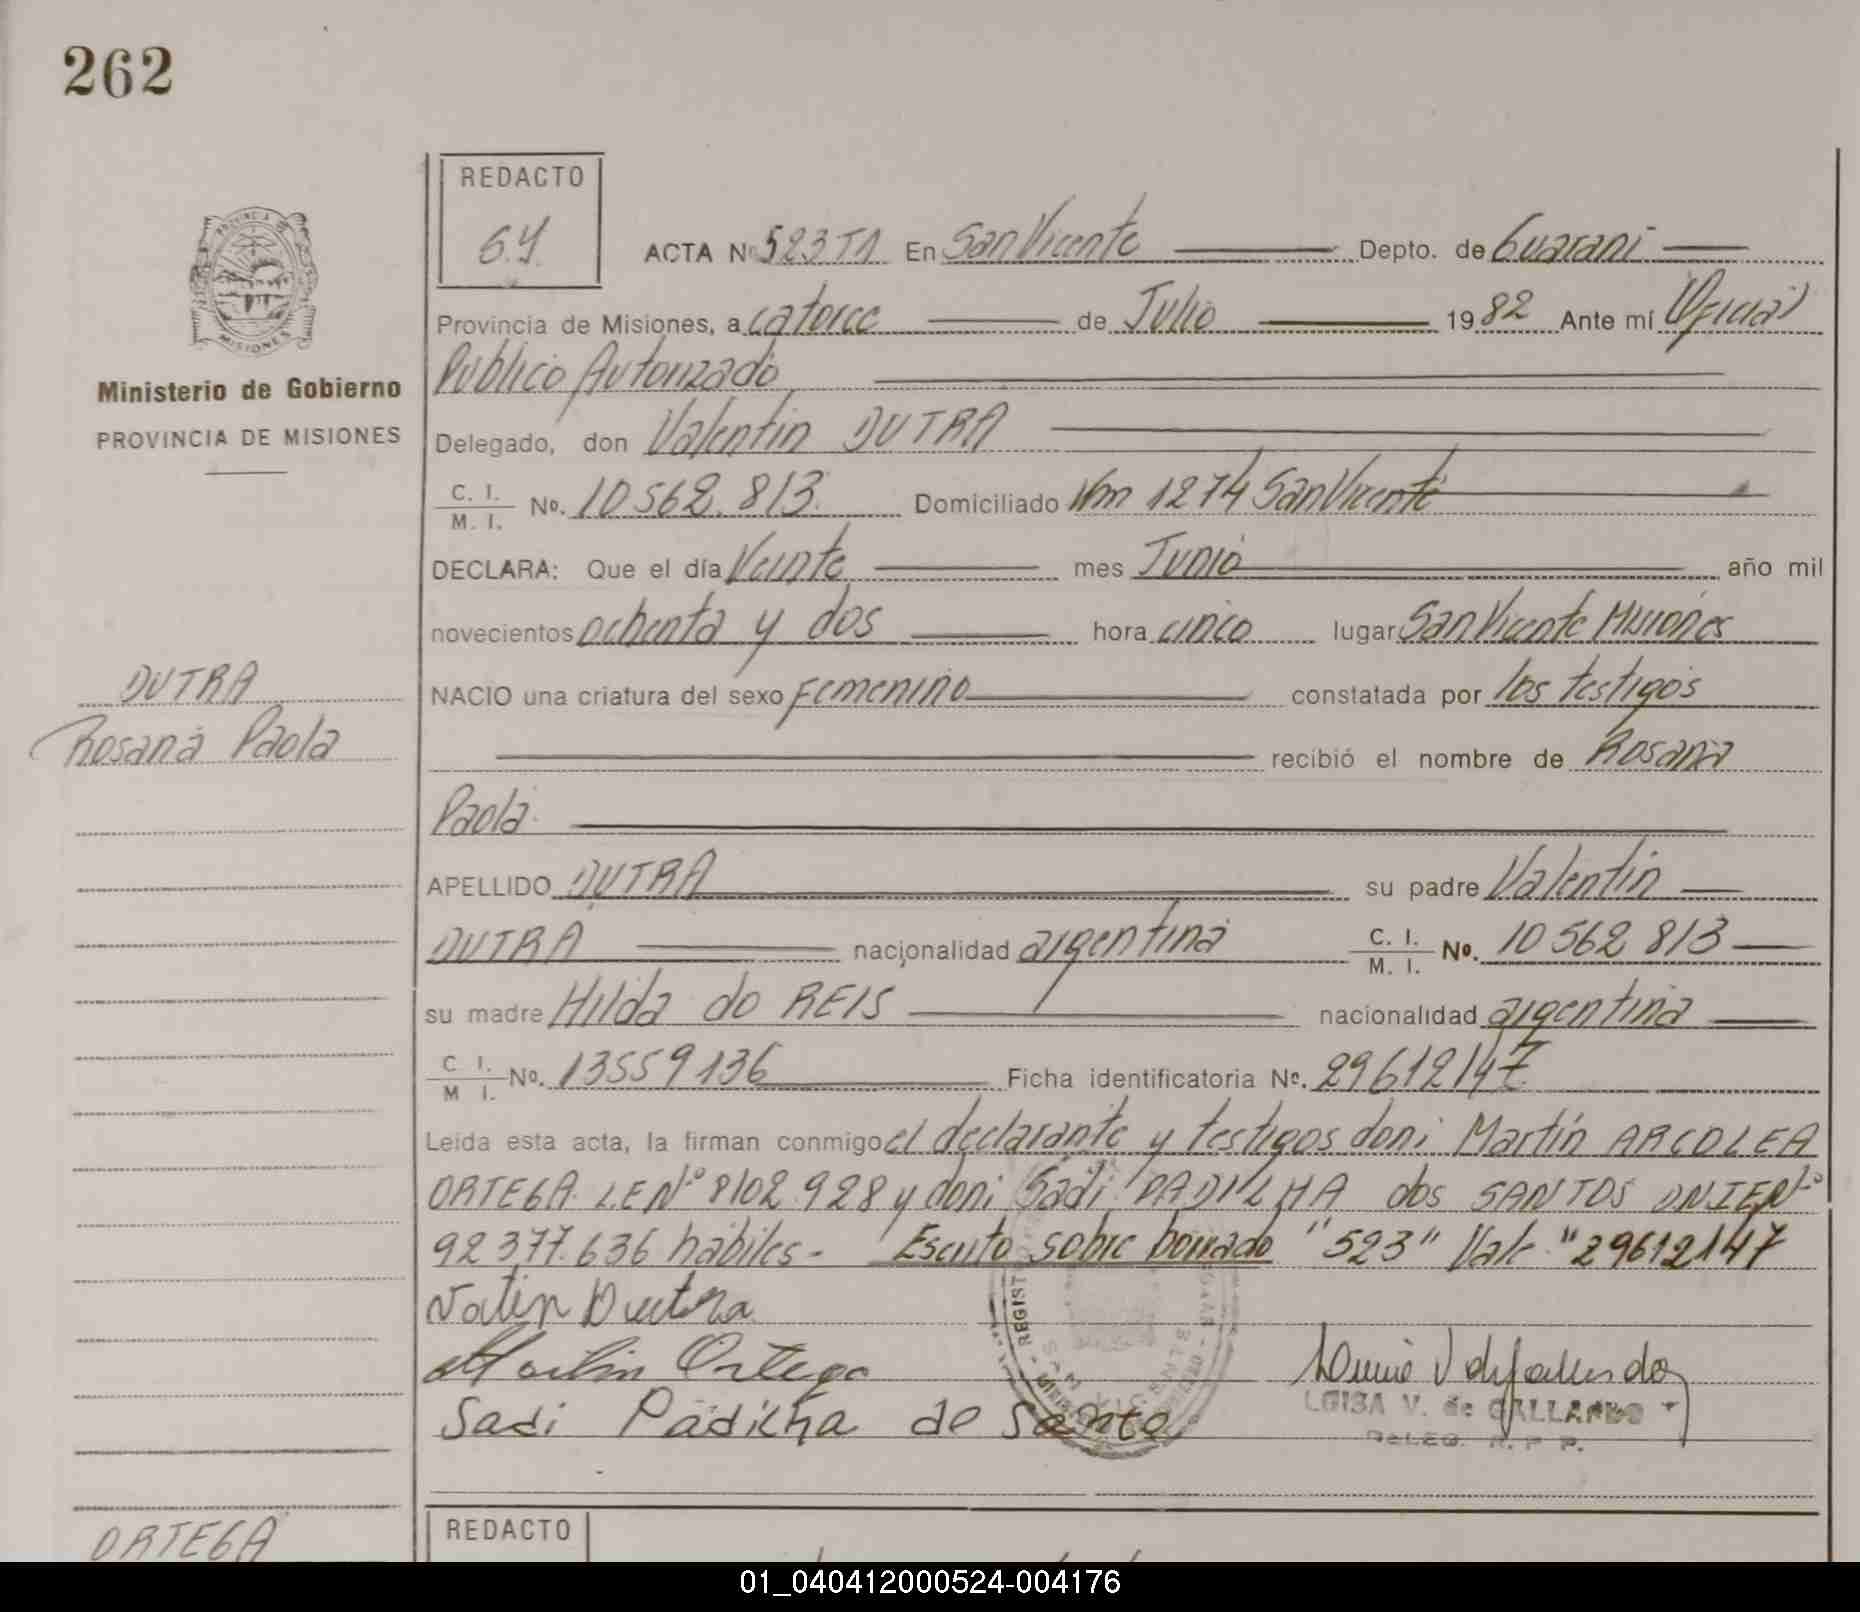 262
REDACTO
S.Y.
ACTA Nº 523 T1 En San Vicente Depto. de Guaraní
Provincia de Misiones, a catorce de Julio 1982 Ante mí Oficial
Público Autorizado
Ministerio de Gobierno
PROVINCIA DE MISIONES
Delegado, don Valentin DUTRA
C. I. M. I. No. 10 562. 813. Domiciliado Km 1274 San Vicente
DECLARA: Que el día Veinte mes Junio año mil
novecientos ochenta y dos hora cinco lugar San Vicente Misiones
DUTRA
NACIO una criatura del sexo Femenino constatada por los testigos
Rosana Paola
recibió el nombre de Rosana
Paola
APELLIDO DUTRA su padre Valentin
DUTRA nacionalidad argentina C. I. M. I. No. 10 562 813
su madre Hilda do REIS nacionalidad argentina
C. I. M I. No. 13559136 Ficha identificatoria No. 29612147
Leída esta acta, la firman conmigo el declarante y testigos doni Martín ARCOLEA
ORTEGA L.E Nº 8102.928 y doni Sadi PADILHA dos SANTOS DNIE Nº
92 377.636 hábiles - Escrito sobre borrado "523" Vale "29612147
Valtin Duutra
Martin Ortega
Sadi Padilha de Santo
LUISA V. de GALLARDO
DELEG. R. P. P.
REGIST
SAN VICENTE
REDACTO
ORTEGA
01_040412000524-004176